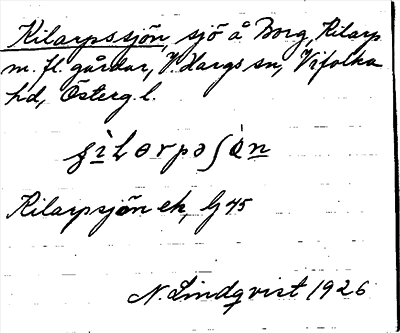 Kilarpssjön, sjö å Borg, Kilarp
m. fl. gårdar, V. Hargs sn, Vifolka
hd, Österg. l.
Kilarpsjön ek, bl 45
N. Lindqvist 1926